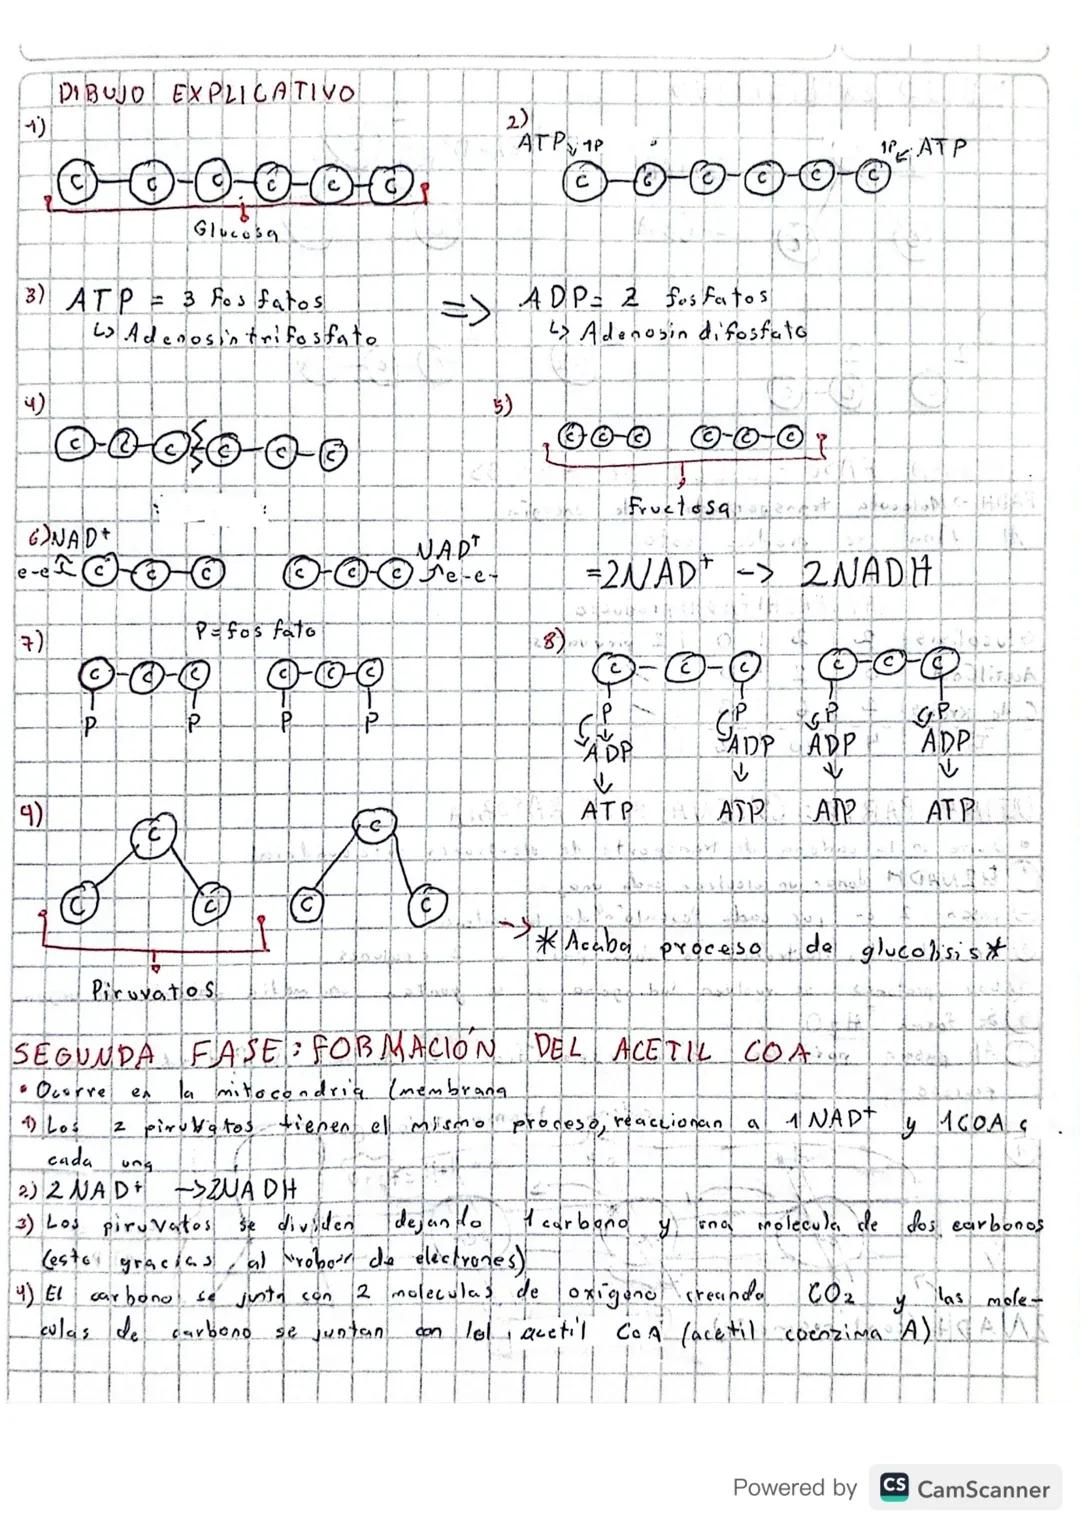 DIBUJO EXPLICATIVO
1)
C C C C C C
Glucosa
2)
ATP 1P 1P ATP
C C C C C C
3) ATP = 3 Fosfatos => ADP= 2 fosfatos
↳ Adenosintrifosfato ↳ Adenosin difosfato
4)
C C C C C C
5)
C C C C C C
Fructosa
6) NAD+ NAD+
e-e C C C C C C e-e-
=2NAD+ -> 2NADH
7) P=fosfato
C C C C C C
P P P P
8)
C C C C C C
P P P P
ADP ADP ADP ADP
ATP ATP ATP ATP
9)
C C
C C C C
Piruvatos
-> *Acaba proceso de glucolisis*
SEGUNDA FASE: FORMACIÓN DEL ACETIL COA
• Ocurre en la mitocondria (membrana
1) Los 2 piruvatos tienen el mismo proceso, reaccionan a 1 NAD+ y 1COA c
cada una
2) 2 NAD+ ->2NADH
3) Los piruvatos se dividen dejando 1 carbono y una molecula de dos carbonos
(esto gracias al "robo" de electrones)
4) El carbono se junta con 2 moleculas de oxigeno creando CO2 y las mole-
culas de carbono se juntan con lal acetil CoA (acetil coenzima A)
Powered by CS CamScanner